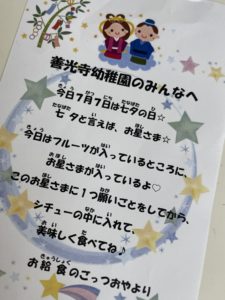 善光寺幼稚園のみんなへ
今日7月7日は七夕の日☆
七夕と言えば、お星さま☆
今日はフルーツが入っているところに、
お星さまが入っているよ♡
このお星さまに1つ願いごとをしてから、
シチューの中に入れて、
美味しく食べてね♪
お給食のこっつおやより